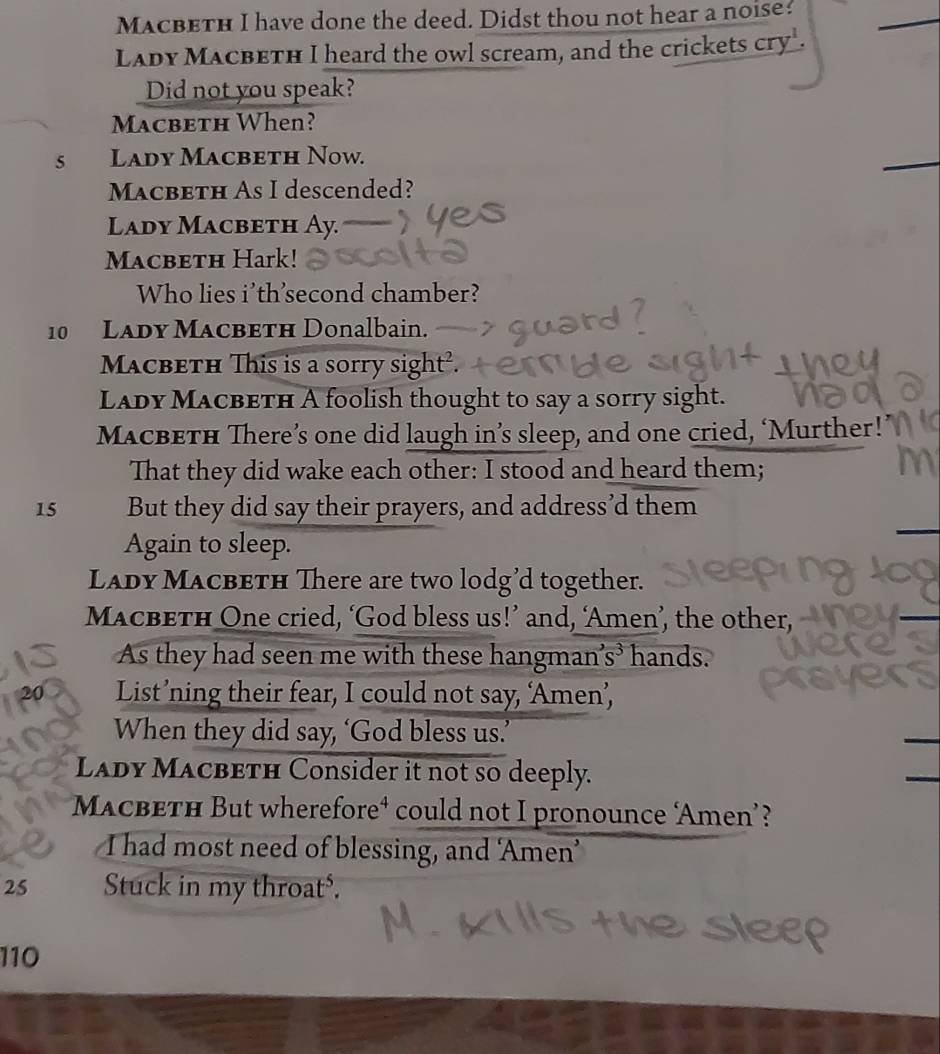 MACBETH I have done the deed. Didst thou not hear a noise?
LADY MACBETH I heard the owl scream, and the crickets cry¹.
Did not you speak?
MACBETH When?
5 LADY MACBETH Now.
MACBETH As I descended?
LADY MACBETH Ay. → yes
MACBETH Hark! ascolta
Who lies i’th’second chamber?
10 LADY MACBETH Donalbain. → guard?
MACBETH This is a sorry sight². terrible sight they
LADY MACBETH A foolish thought to say a sorry sight. had a
MACBETH There’s one did laugh in’s sleep, and one cried, ‘Murther!’
That they did wake each other: I stood and heard them;
15 But they did say their prayers, and address’d them
Again to sleep.
LADY MACBETH There are two lodg’d together. sleeping tog
MACBETH One cried, ‘God bless us!’ and, ‘Amen’, the other, they
As they had seen me with these hangman’s³ hands. were s
20 List’ning their fear, I could not say, ‘Amen’, prayers
When they did say, ‘God bless us.’
LADY MACBETH Consider it not so deeply.
MACBETH But wherefore⁴ could not I pronounce ‘Amen’?
I had most need of blessing, and ‘Amen’
25 Stuck in my throat⁵.
M. kills the sleep
110